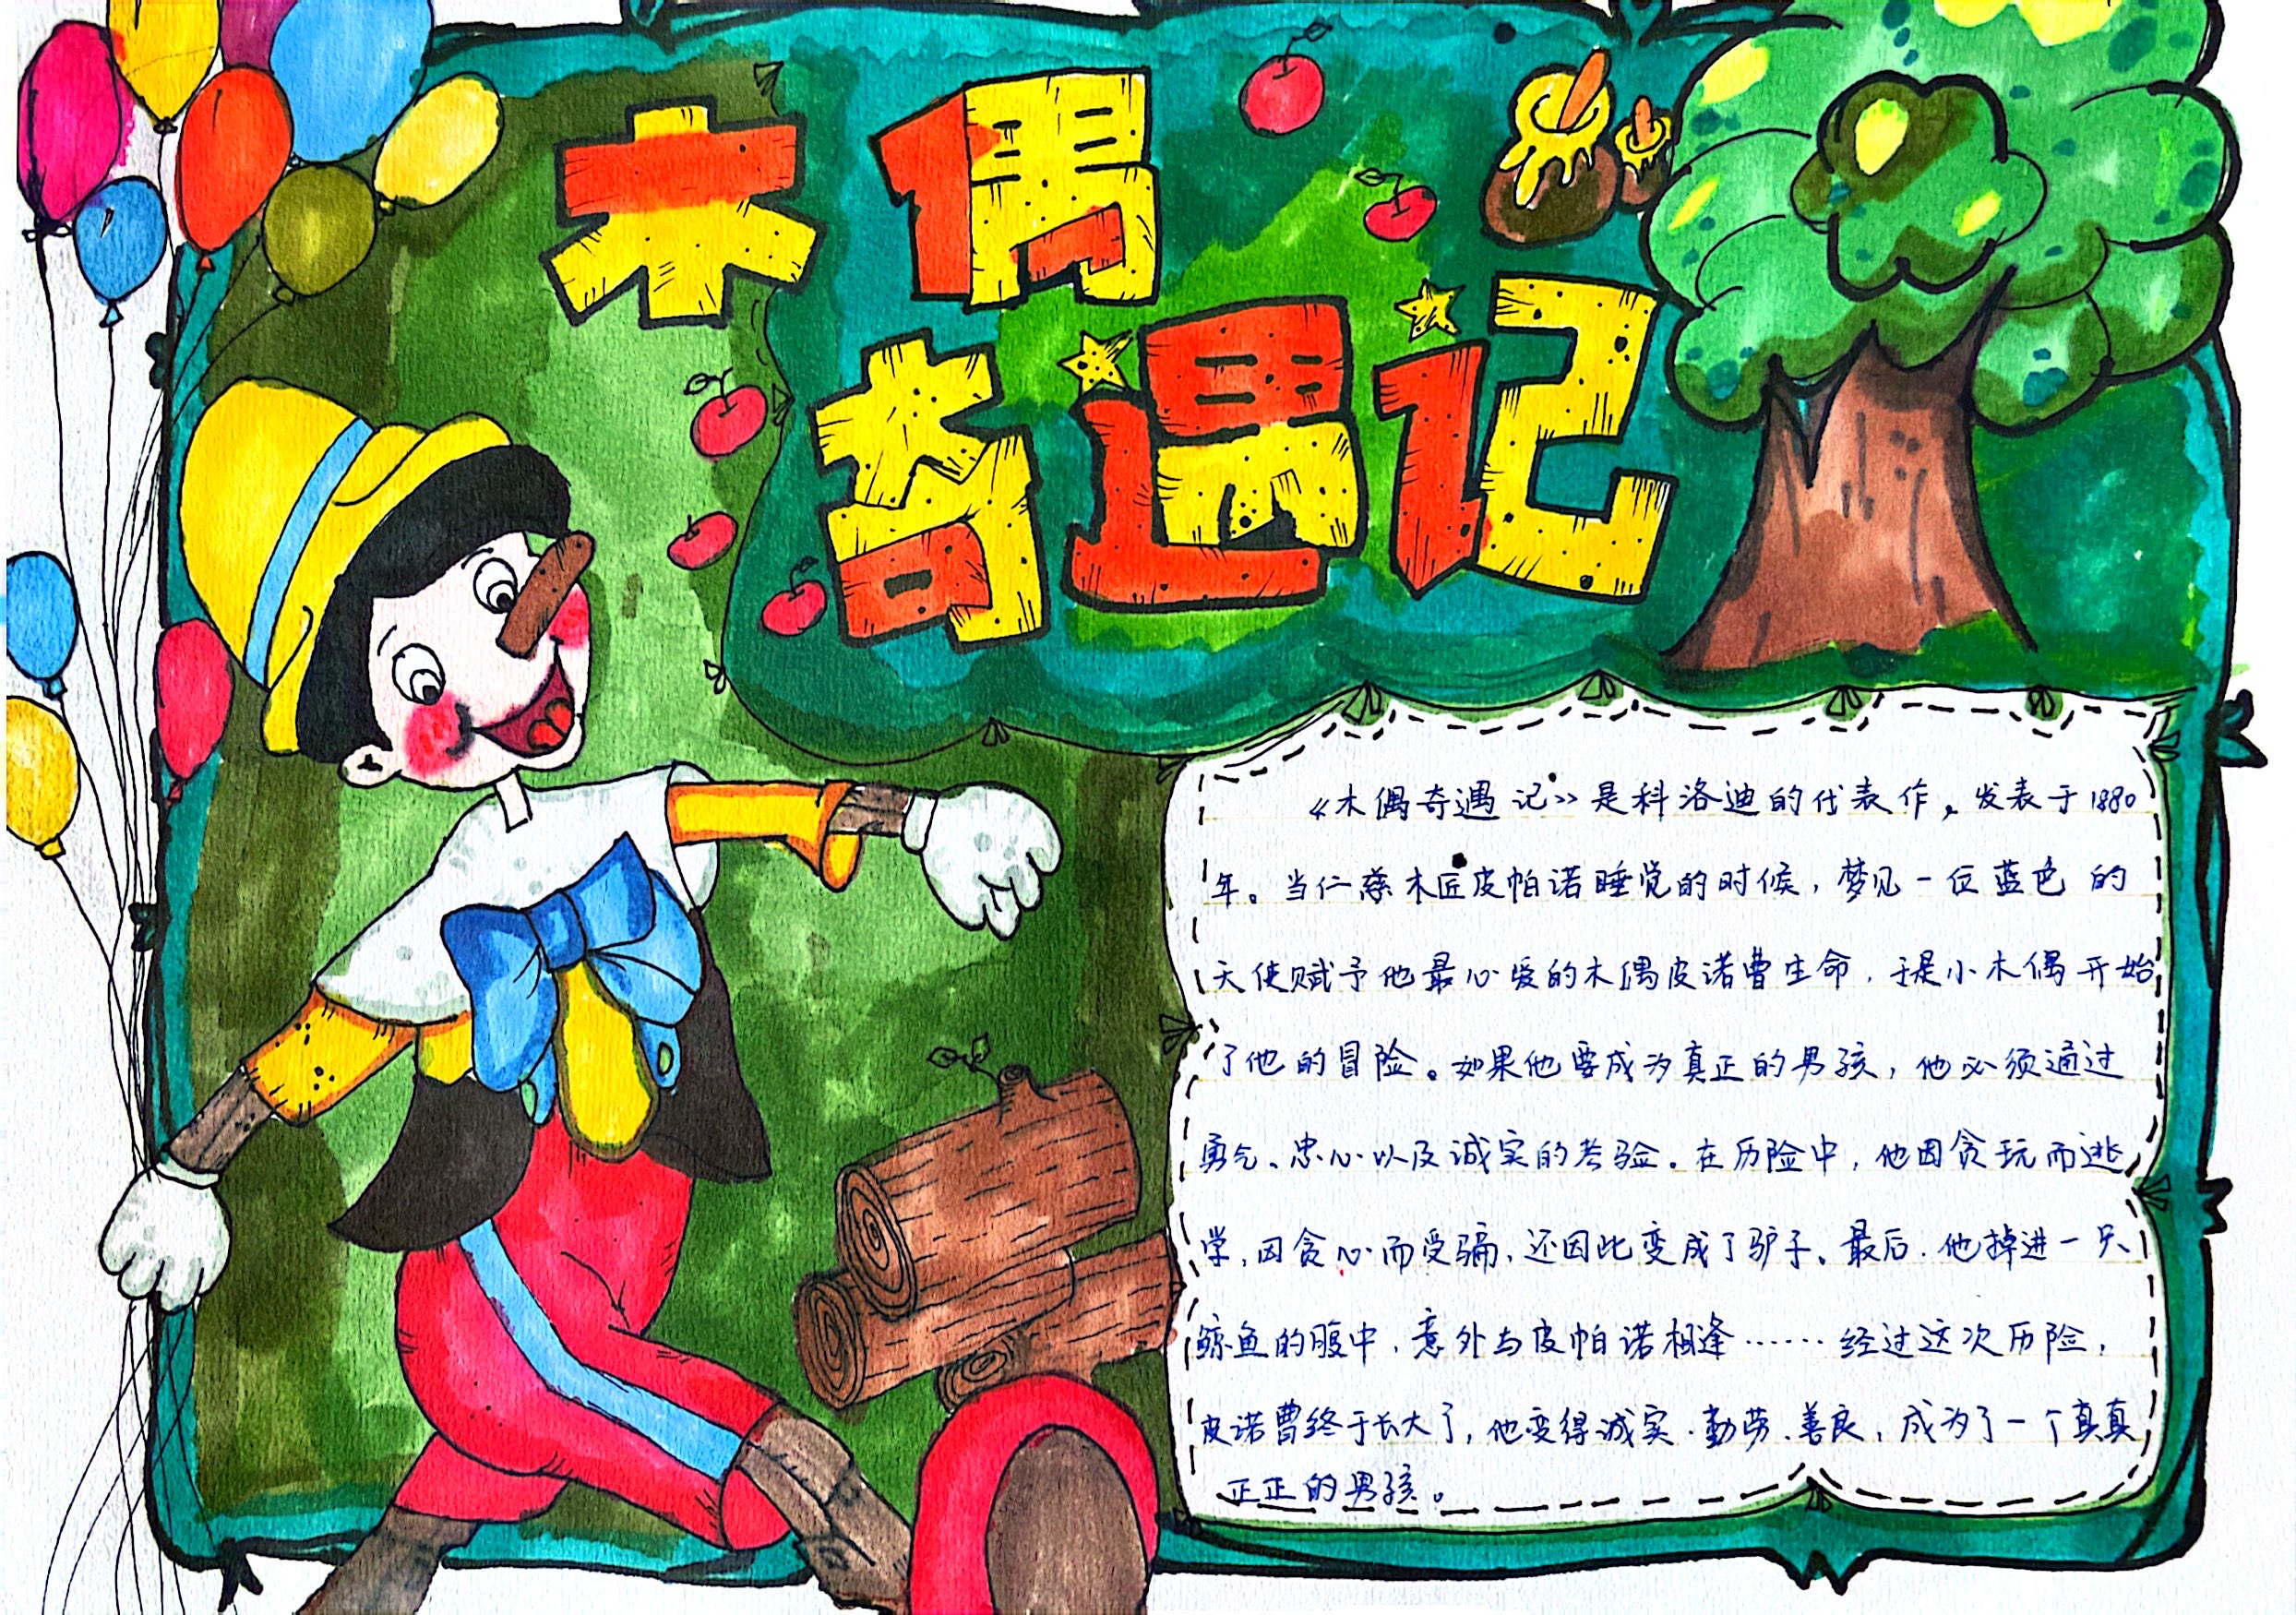 木偶
奇遇记
《木偶奇遇记》是科洛迪的代表作，发表于1880
年。当仁慈木匠皮帕诺睡觉的时候，梦见一位蓝色的
天使赋予他最心爱的木偶皮诺曹生命，于是小木偶开始
了他的冒险。如果他要成为真正的男孩，他必须通过
勇气、忠心以及诚实的考验。在历险中，他因贪玩而逃
学，因贪心而受骗，还因此变成了驴子。最后，他掉进一只
鲸鱼的腹中，意外与皮帕诺相逢……经过这次历险，
皮诺曹终于长大了，他变得诚实、勤劳、善良，成为了一个真真
正正的男孩。